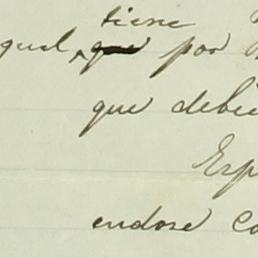 tiene
qual, que por
que debie
Esp
endose co